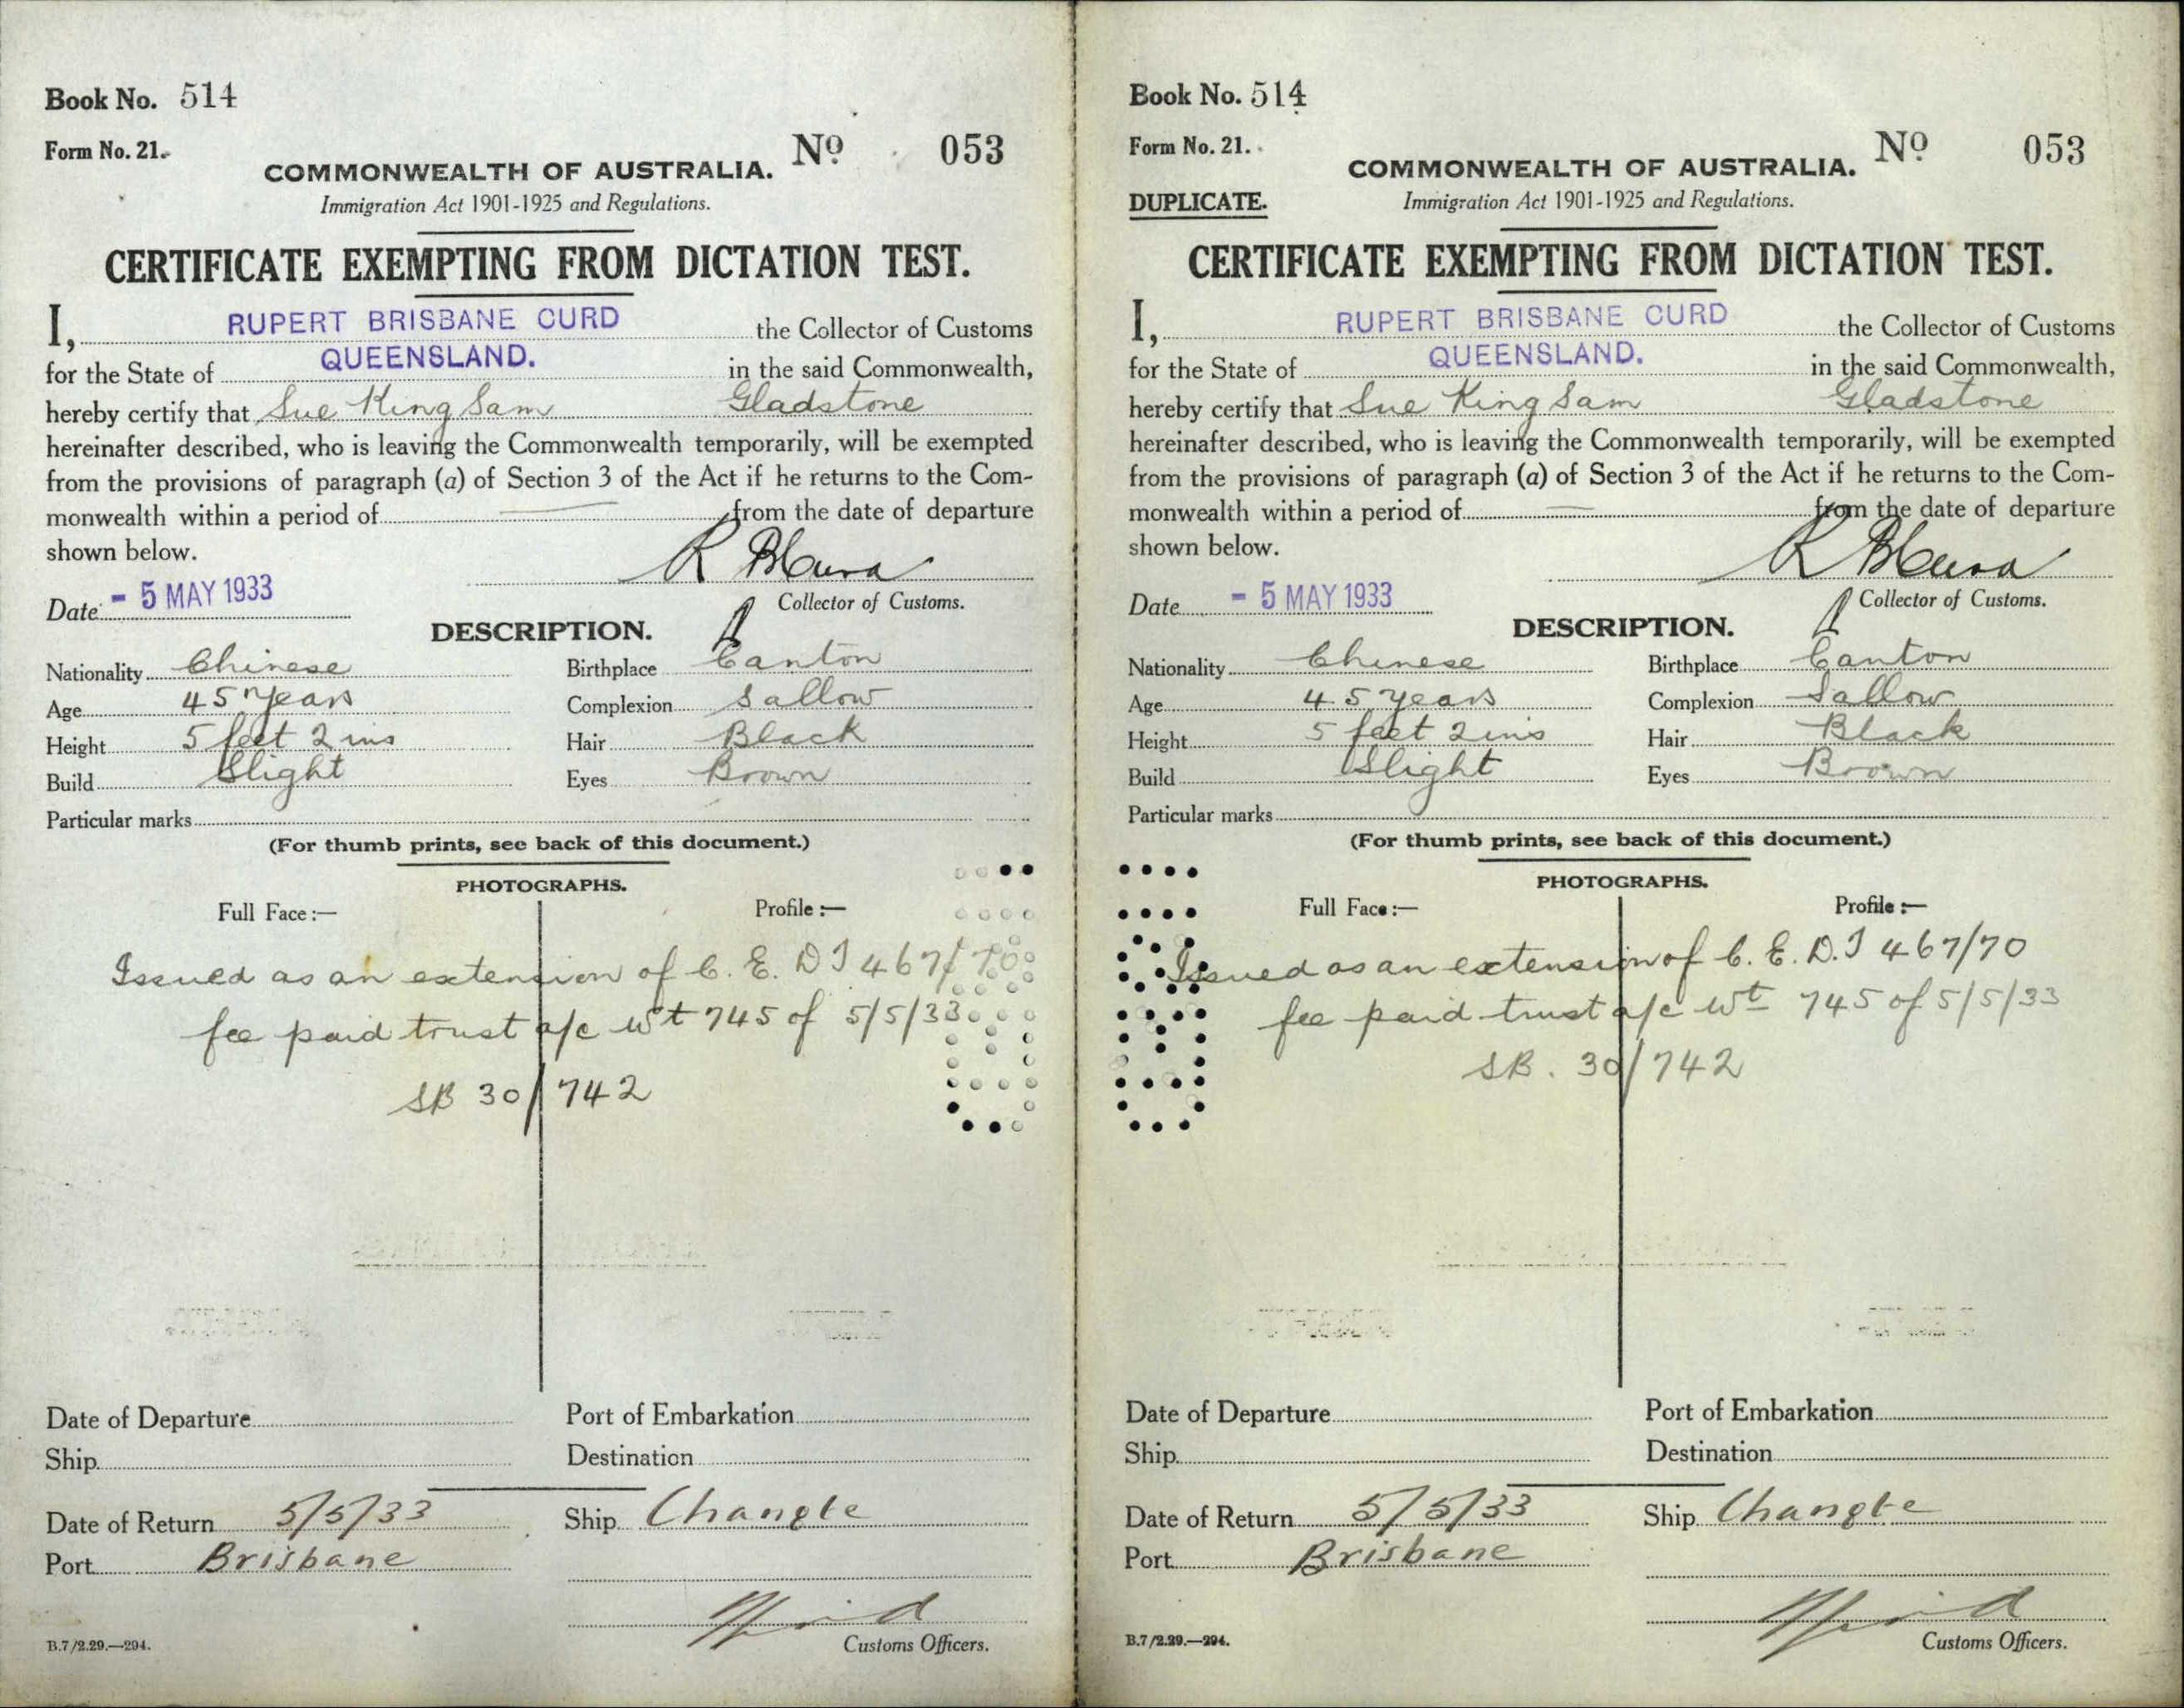 Book No. 514
Form No. 21.
COMMONWEALTH OF AUSTRALIA. No 053
Immigration Act 1901-1925 and Regulations.
CERTIFICATE EXEMPTING FROM DICTATION TEST.
I, RUPERT BRISBANE CURD the Collector of Customs
for the State of QUEENSLAND. in the said Commonwealth,
hereby certify that Sue King Sam Gladstone
hereinafter described, who is leaving the Commonwealth temporarily, will be exempted
from the provisions of paragraph (a) of Section 3 of the Act if he returns to the Com-
monwealth within a period of from the date of departure
shown below.
Date - 5 MAY 1933
Collector of Customs.
DESCRIPTION.
Nationality Chinese Birthplace Canton
Age 45 years Complexion Sallow
Height 5 feet 2 ins Hair Black
Build Slight Eyes Brown
Particular marks
(For thumb prints, see back of this document.)
PHOTOGRAPHS.
Full Face :— Profile :—
Issued as an extension of C. E. D T 467/70
fee paid trust a/c wt 745 of 5/5/33
SB 30/742
Date of Departure Port of Embarkation
Ship Destination
Date of Return 5/5/33 Ship Changte
Port Brisbane
Customs Officers.
B.7/2.29.—294.
Book No. 514
Form No. 21.
COMMONWEALTH OF AUSTRALIA. No 053
DUPLICATE. Immigration Act 1901-1925 and Regulations.
CERTIFICATE EXEMPTING FROM DICTATION TEST.
I, RUPERT BRISBANE CURD the Collector of Customs
for the State of QUEENSLAND. in the said Commonwealth,
hereby certify that Sue King Sam Gladstone
hereinafter described, who is leaving the Commonwealth temporarily, will be exempted
from the provisions of paragraph (a) of Section 3 of the Act if he returns to the Com-
monwealth within a period of from the date of departure
shown below.
Date - 5 MAY 1933
Collector of Customs.
DESCRIPTION.
Nationality Chinese Birthplace Canton
Age 45 years Complexion Sallow
Height 5 feet 2 ins Hair Black
Build Slight Eyes Brown
Particular marks
(For thumb prints, see back of this document.)
PHOTOGRAPHS.
Full Face :— Profile :—
Issued as an extension of C. E. D. T 467/70
fee paid trust a/c wt 745 of 5/5/33
SB. 30/742
Date of Departure Port of Embarkation
Ship Destination
Date of Return 5/5/33 Ship Changte
Port Brisbane
Customs Officers.
B.7/2.29.—294.